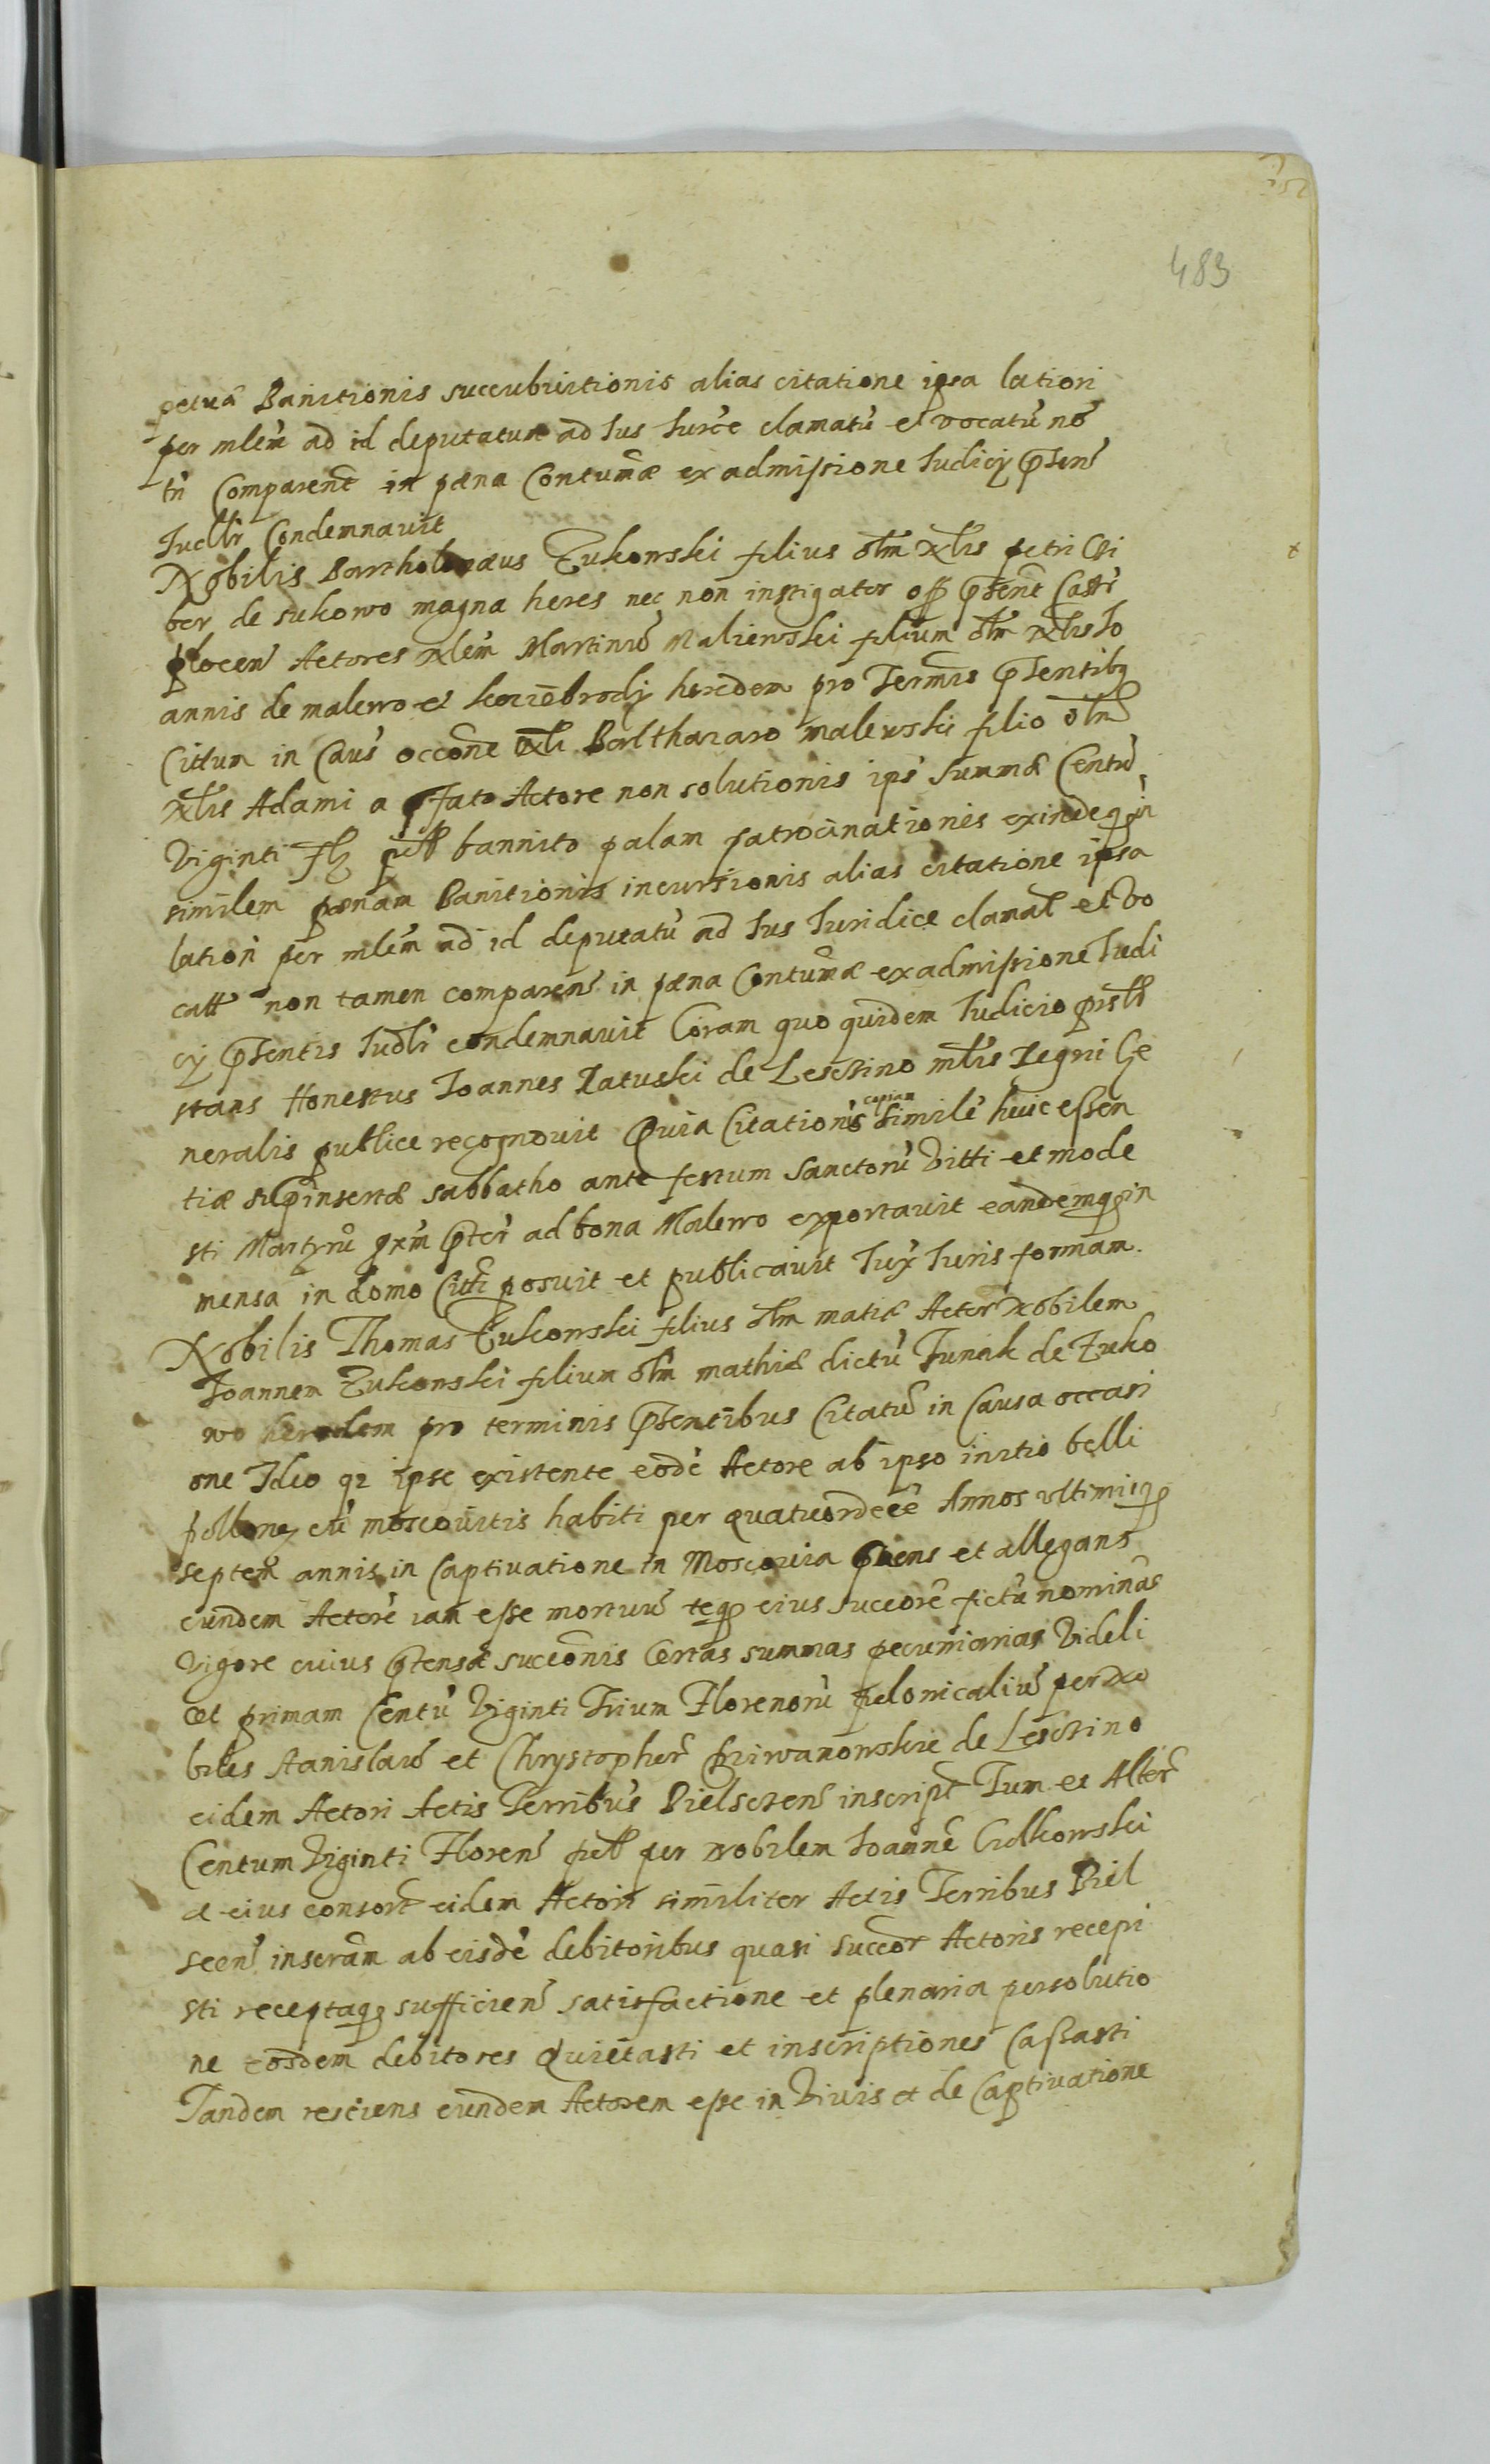 483
petuâ Banitionis succubuitionis alias citatione ipsa latiori
per mlem ad id deputatum ad Ius Iurce clamatũ et vocatũ nõ
tñ Comparent in pæna Contumæ ex admissione Iudicij pñtens
Iudlr Condemnauit
Nobilis Bartholomæus Zukowski filius olm Nlis petri
ber de sukowo magna heres nec non instigator off pñtens Castri
plocens Actores Nlem Martinũ Maliewski filium olm Nlis Io
annis de malewo et heredem pro Termis pñtentibq
Cittum in Caus occone Nli Balthazaro malewski filio olm
Nlis Adami a pfato Actore non solutionis ips summæ Centũ
Viginti flz bannito palam patrocinationis exindeq in
similem pænam Banitionis incursionis alias citatione ipsa
lation per mlem ad id deputatũ ad Ius Iuridice clamat et vo
catt non tamen comparens in pæna Contumæ ex admissione Iudi
cij pñtentis Iudlr condemnauit Coram quo quidem Iudicio
stans Honestus Ioannes Ratuski de Lesczino mlis Regni Ge
neralis publice recognouit Quia Citationis copiam similẽ huic essen
tiæ supinsertæ sabbatho ante festum Sanctorũ Vitti et mode
sti Martyrũ pxm pter ad bona Malewo exportauit eandemq in
mensa in domo Citti posuit et publicauit Iux Iuris formam.
Nobilis Thomas Zukowski filius olm matiæ Actor Nobilem
Ioannem Zukowski filium olm mathiæ dictũ Iunak de Zuko
wo heredem pro terminis pñtentibus Citatũ in Causa occasi
one Ideo qz ipse existente eodẽ Actore ab ipso initio belli
cũ moscouitis habiti per quatuordecẽ Annos vltimisq
septem annis in Captiuatione in Moscouia et allegans
eundem Actorẽ iam esse mortuũ teq eius succorẽ fictũ nominãs
Vigore cuius ptensæ succonis Certas summas pecuniarias Videli
cet primam Centũ Viginti Trium Florenorũ polonicaliũ per No
biles Stanislaũ et Chrystopherũ de Lesczino
eidem Actori Actis Terribus Bielscens inscript Tum et Alterã
Centum Viginti Florens poll per Nobilem Ioannẽ Cidkowski
a eius consort eidem Actori similiter Actis Terribus Biel
scens inscram ab eisdẽ debitoribus quasi Succor Actoris recepi
sti receptaq sufficiens satisfactione et plenaria persolutio
ne eosdem debitores Quietasti et inscriptiones Cassasti
Tandem resciens eundem Actorem esse in Viuis et de Captiuatione